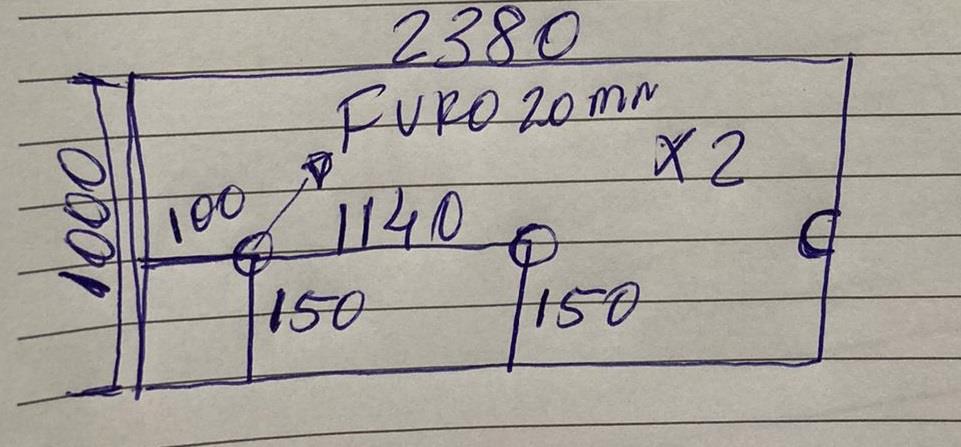 2380
FURO 20mm
X2
1000
100
1140
150
150